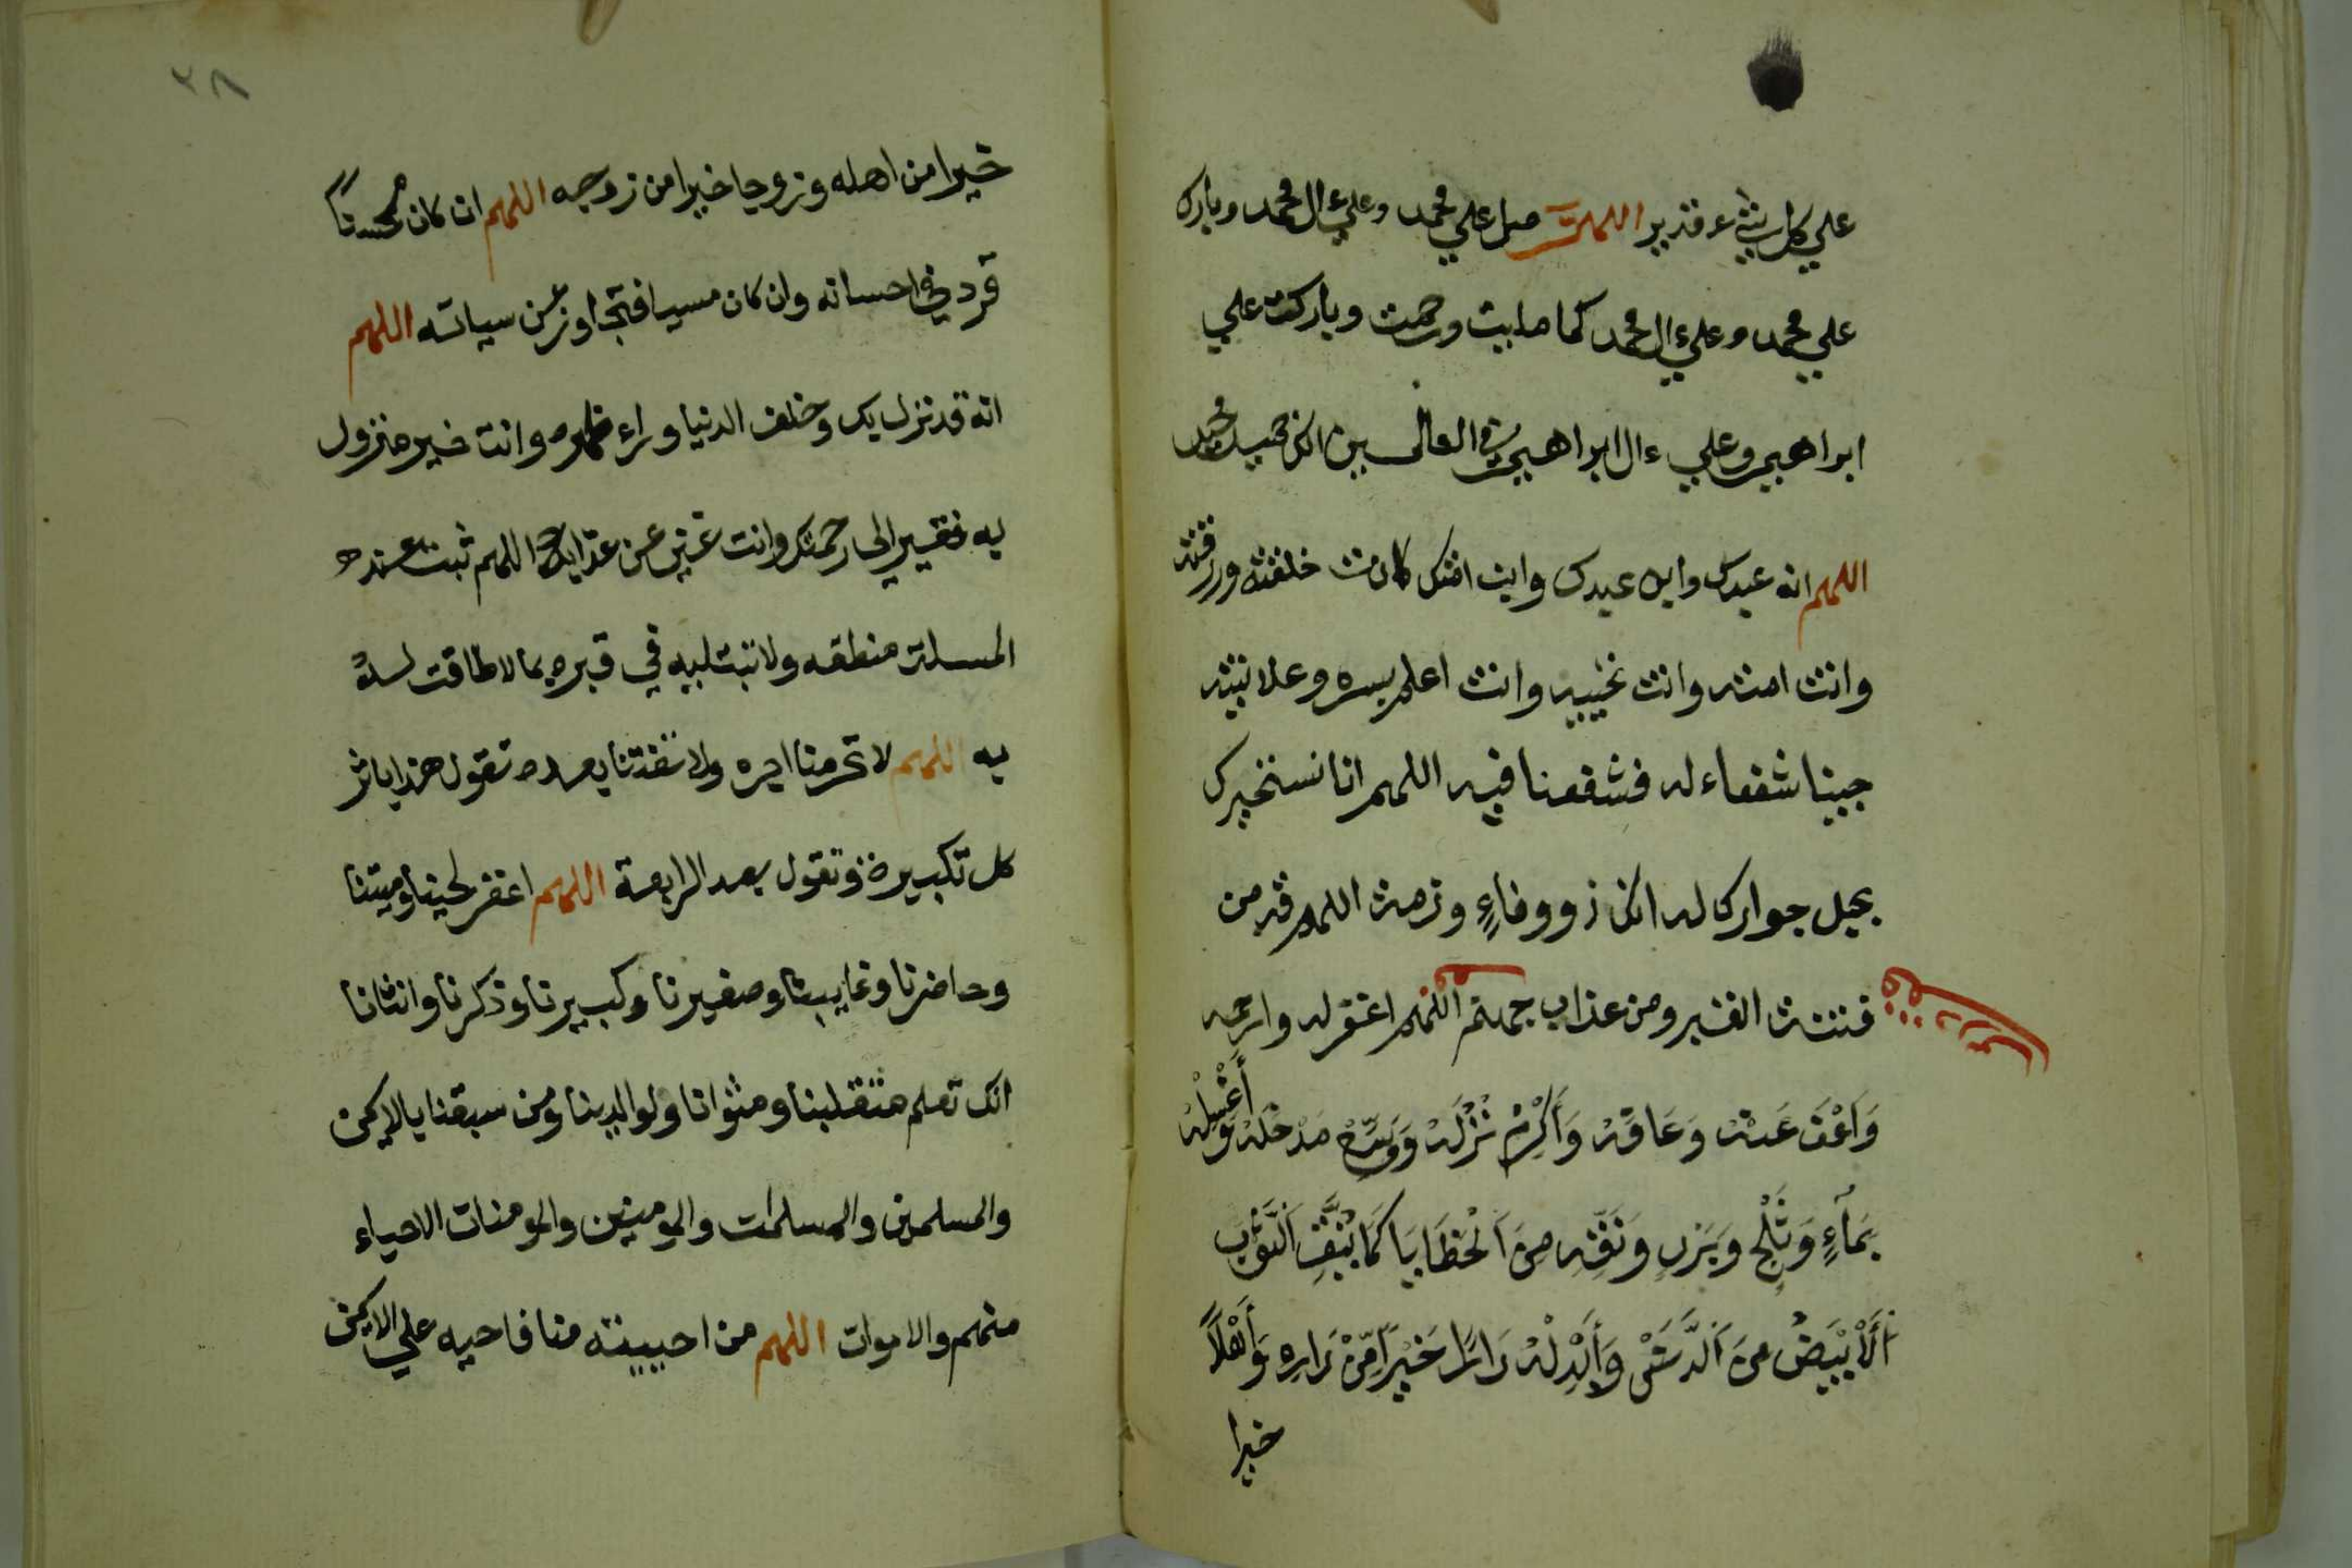 علي كل شيء قدير اللهم صل علي محمد وعلي ءال محمد وبارك
علي محمد وعلي ءال محمد كما صليت ورحمت وباركت علي
ابراهيم وعلي ءال ابراهيم في العالمين انك حميد مجيد
اللهم انه عبدك وابن عبدك وابن امتك كانت خلقته ورزقته
وانت امته وانت تحييه وانت اعلم بسره وعلانيته
جينا شفعاء له فشفعنا فيه اللهم انا نستخيرك
بحبل جوارك له انك ذو وفاءٍ وذمت اللهم قه من
فتنت القبر ومن عذاب جهنم اللهم اغفر له وارحمه
وَاَعْفُ عَنْهُ وَعَافِهِ وَأَكْرِمْ نُزُلَهُ وَوَسِّعْ مَدْخَلَهُ وَأَغْسِلْهُ
بِمَاءٍ وَثَلْجٍ وَبَرَدٍ وَنَقِّهِ مِنَ اَلْخَطَايَا كَمَا يُنَقَّى اَلثَّوْبُ
اَلْأَبْيَضُ مِنَ اَلدَّنَسِ وَأَبْدِلْهُ دَارًا خَيْرًا مِّنْ دَارِهِ وَأَهْلًا
خيرا
٣٨
خيرا من اهله وزوجا خيرا من زوجه اللهم ان كان محسناً
فزد في احسانه وان كان مسيا فتجاوز عن سياته اللهم
انه قد نزل بك وخلف الدنيا وراء ظهره وانت خير منزول
به فقير الى رحمتك وانت غني عن عذابه اللهم ثبت عند
المسلة منطقه ولا تبتليه في قبره بما لا طاقت له
به اللهم لا تحرمنا اجره ولا تفتنا بعده تقول هذا باثر
كل تكبيرة وتقول بعد الرابعة اللهم اغفر لحينا وميتنا
وحاضرنا وغايبنا وصغيرنا وكبيرنا وذكرنا وانثانا
انك تعلم متقلبنا ومثوانا ولوالدينا ومن سبقنا بالايمن
والمسلمين والمسلمات والمومنين والمومنات الاحياء
منهم والاموات اللهم من احييته منا فاحيه علي الايمن